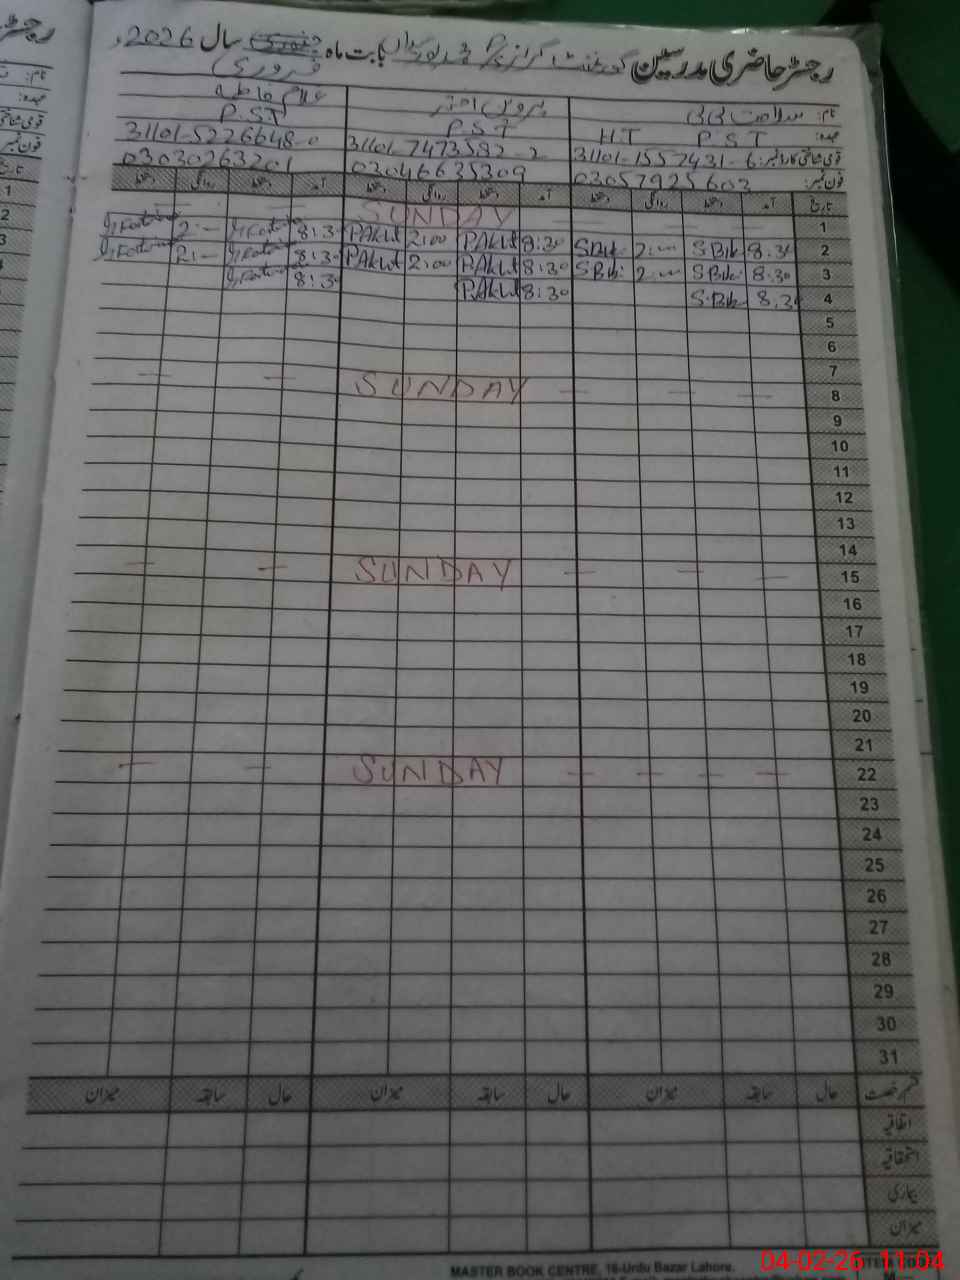 رجسٹر حاضری مدرسین گورنمنٹ گرلز بابت ماہ فروری سال 2026ء
نام: سلامت بی بی پروین اختر غلام فاطمہ
عہدہ: H.T P.S.T P.S.T P.ST
قومی شناختی کارڈ نمبر: 31101-1557431-6 31101-7473582-2 31101-5226648-0
فون نمبر: 03057925603 03046635309 03030263201
تاریخ آمد دستخط روانگی دستخط آمد دستخط روانگی دستخط آمد دستخط روانگی دستخط
1 — — — — SUNDAY — — —
2 8:30 S.Bibi 2:00 S.Bibi 8:30 PAkht 2:00 PAkht 8:30 2:—
3 8:30 S.Bibi 2:00 S.Bibi 8:30 PAkht 2:00 PAkht 8:30 2:—
4 8:30 S.Bibi 8:30 PAkht 8:30
5
6
7
8 — — — SUNDAY — —
9
10
11
12
13
14
15 — — — SUNDAY — —
16
17
18
19
20
21
22 — — — — SUNDAY — —
23
24
25
26
27
28
29
30
31
قسم رخصت حال سابقہ میزان حال سابقہ میزان حال سابقہ میزان
اتفاقیہ
استحقاقیہ
بیماری
میزان
MASTER BOOK CENTRE, 16-Urdu Bazar Lahore.
04-02-26 11:04